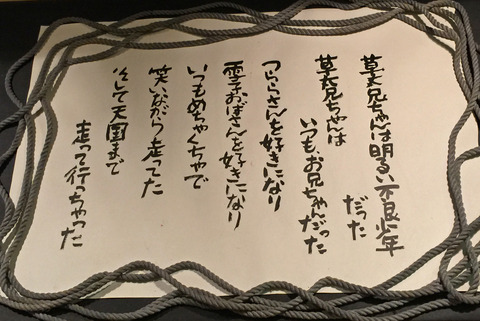 草太兄ちゃんは明るい不良少年
だった
草太兄ちゃんは
いつもお兄ちゃんだった
つららさんを好きになり
雪子おばさんを好きになり
いつもめちゃくちゃで
笑いながら走ってた
そして天国まで
走って行っちゃった